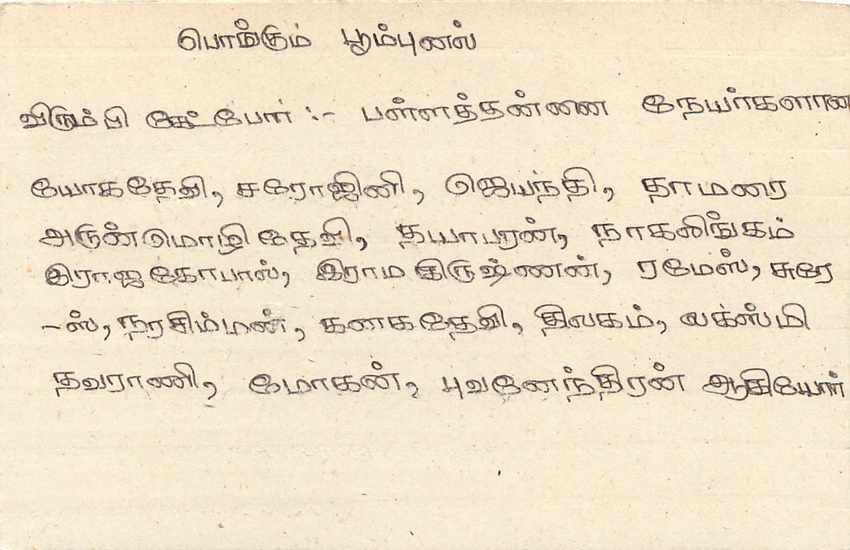 பொங்கும் பூம்புனல்
விரும்பி கேட்போர் :- பள்ளத்தன்னை நேயர்களான
யோகதேவி, சரோஜினி, ஜெயந்தி, தாமரை
அருண்மொழிதேவி, தயாபரன், நாகலிங்கம்
இராஜகோபால், இராமகிருஷ்ணன், ரமேஸ், சுரே
-ஸ், நரசிம்மன், கனகதேவி, திலகம், லக்ஸ்மி
தவராணி, மோகன், புவனேந்திரன் ஆகியோர்